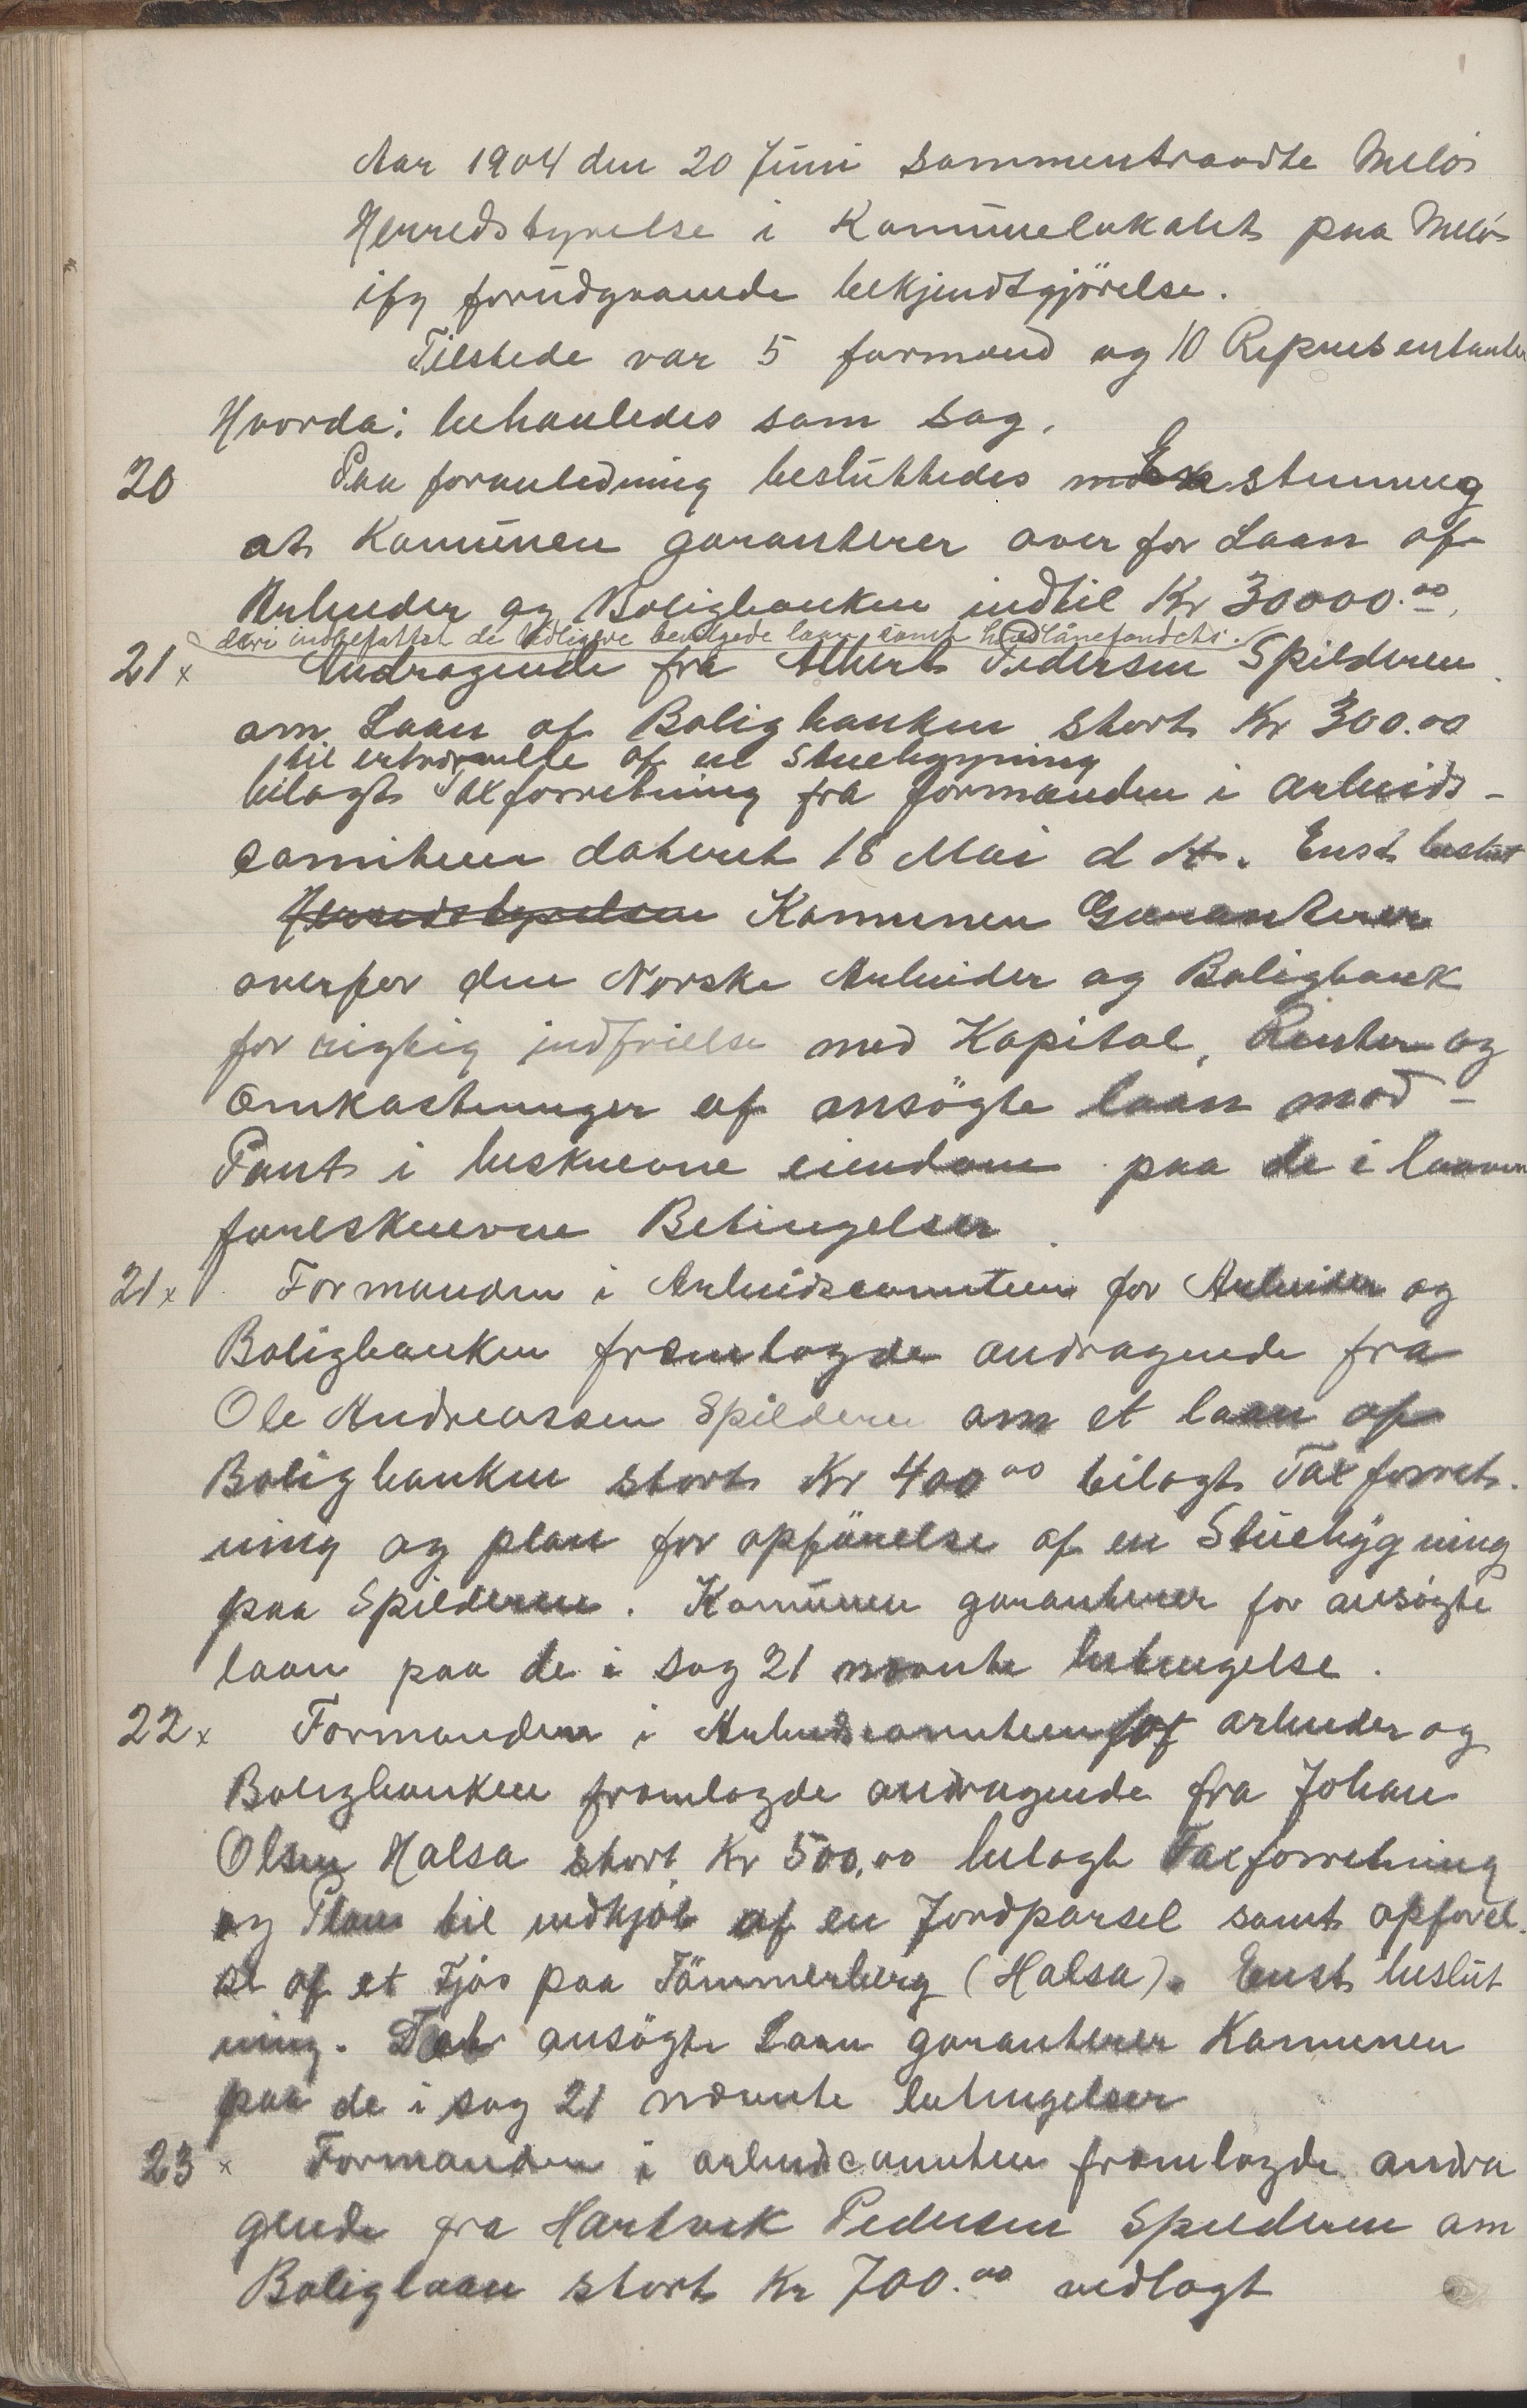 Aar 1904 den 20 Juni sammentraadte Melö
Herredstyrelse i Komunelokalet paa Melö
ifg forudgaaende bekjendtgjörelse.
Tilstede var 5 formænd og 10 Representanter
Hvorda: behanledes som sag.
20 Paa foranledning besluttedes Enstemmig
at Komunen garanterer over for Laan af
Arbeider og Boligbanken indtil Kr 30000.00,
deri indbefattet de tidligere bevilgede laan samt haandlånefondets.
21x Andragende fra Albert Pedersen Spilderen
om Laan af Boligbanken stort Kr 300.00
til erhvervelse af en Stuebygning
bilagt Taxforretning fra formanden i arbeids-
comiteen dateret 18 Mai d A. Enst beslut
Herredstyrelsen Komunen Garanterer
overfor den Norske Arbeider og Boligbank
for rigtig indfrielse med Kapital, Renter og
Omkostninger af ansögte laan mod-
Pant i beskrevne eiendom paa de i loven
foreskrevne Betingelser.
21x Formanden i Arbeidscomiteen for Arbeider og
Boligbanken fremlagde andragende fra
Ole Andreassen Spilderen om et laan af
Boligbanken stort Kr 400 00 bilagt Taxforret-
ning og plan for opförelse af en Stuebygning
paa Spilderen. Komunen garanterer for ansögte
laan paa de i sag 21 nævnte betingelse.
22x Formanden i Arbeidscomiteen for arbeider og
Boligbanken fremlagde andragende fra Johan
Olsen Halsa stort Kr 500,00 bilagt Taxforretning
og Plan til indkjöb af en Jordparsel samt opförel-
se af et Fjös paa Tömmerberg (Halsa). Enst beslut
ning. Det ansögte Laan garanterer Komunen
paa de i sag 21 nævnte betingelser
23x Formanden i arbeidscomiteen fremlagde andra
gende fra Hartvik Pedersen Spilderen om
Boliglaan stort Kr 700.00 vedlagt